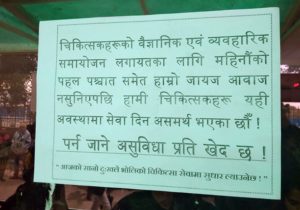 चिकित्सकहरूको वैज्ञानिक एवं व्यवहारिक
समायोजन लगायतका लागि महिनौंको
पहल पश्चात समेत हाम्रो जायज आवाज
नसुनिएपछि हामी चिकित्सकहरू यही
अवस्थामा सेवा दिन असमर्थ भएका छौं !
पर्न जाने असुविधा प्रति खेद छ !
"आजको सानो दुःखले भोलिको चिकित्सा सेवामा सुधार ल्याउनेछ !"